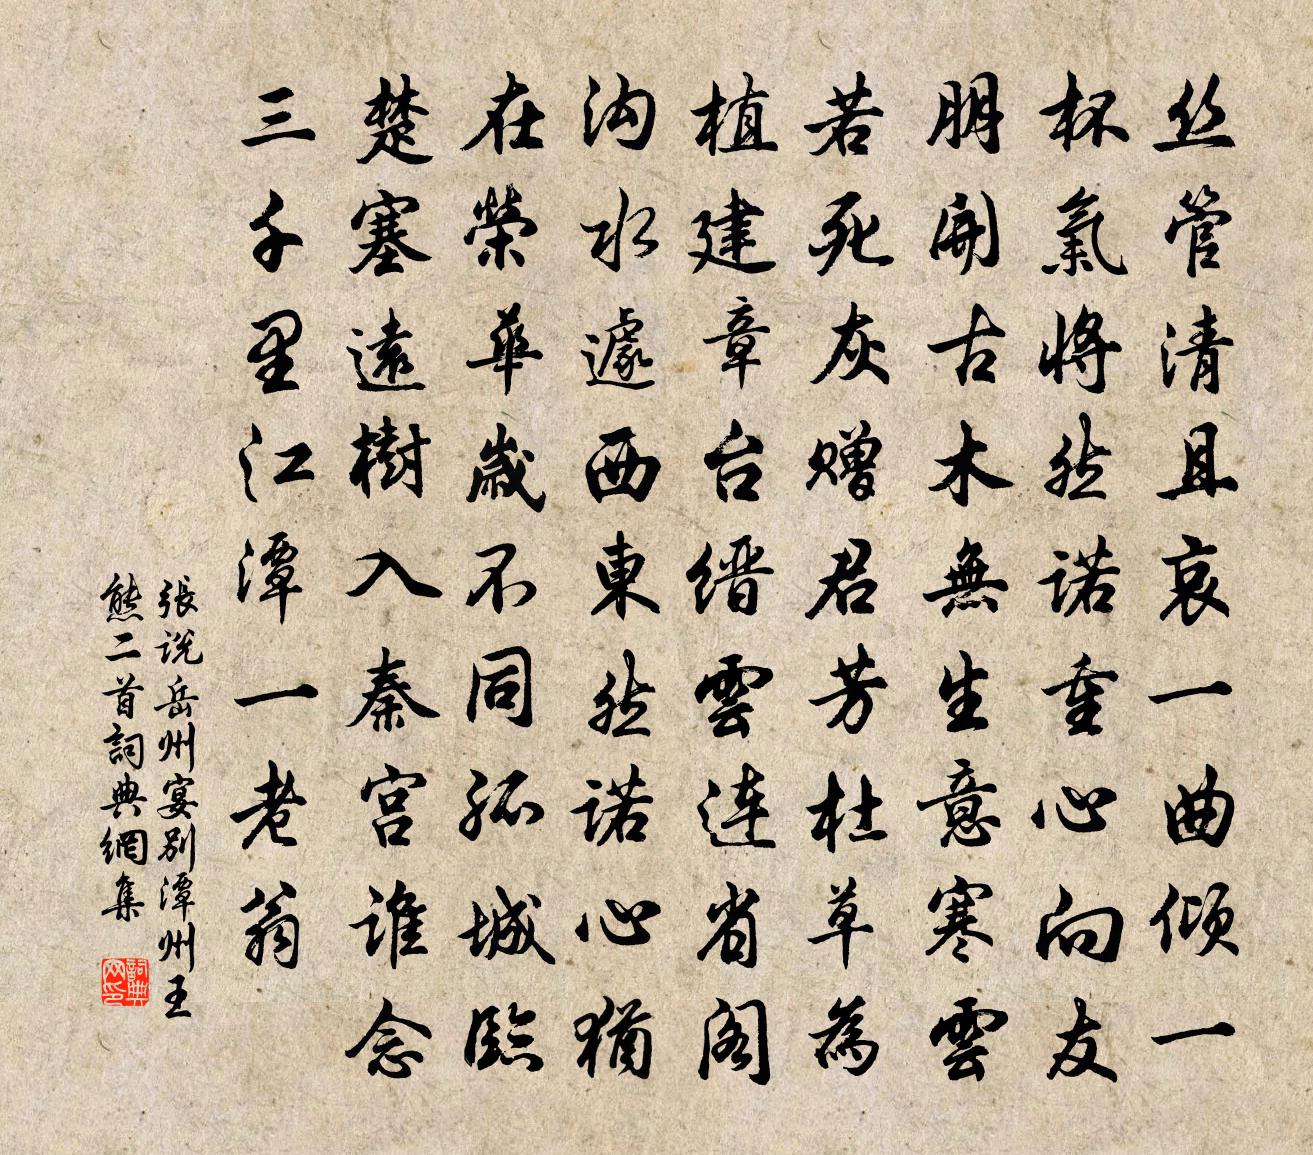 丝管清且哀一曲倾一
杯氣將然诺重心向友
朋開古木無生意寒雲
若死灰赠君芳杜草為
植建章台缙雲連省阁
沟水遽西東然诺心猶
在榮華歲不同孤城臨
楚塞遠樹入秦宫谁念
三千里江潭一老翁
張说岳州宴别潭州王
熊二首詞典網集
詞典网印